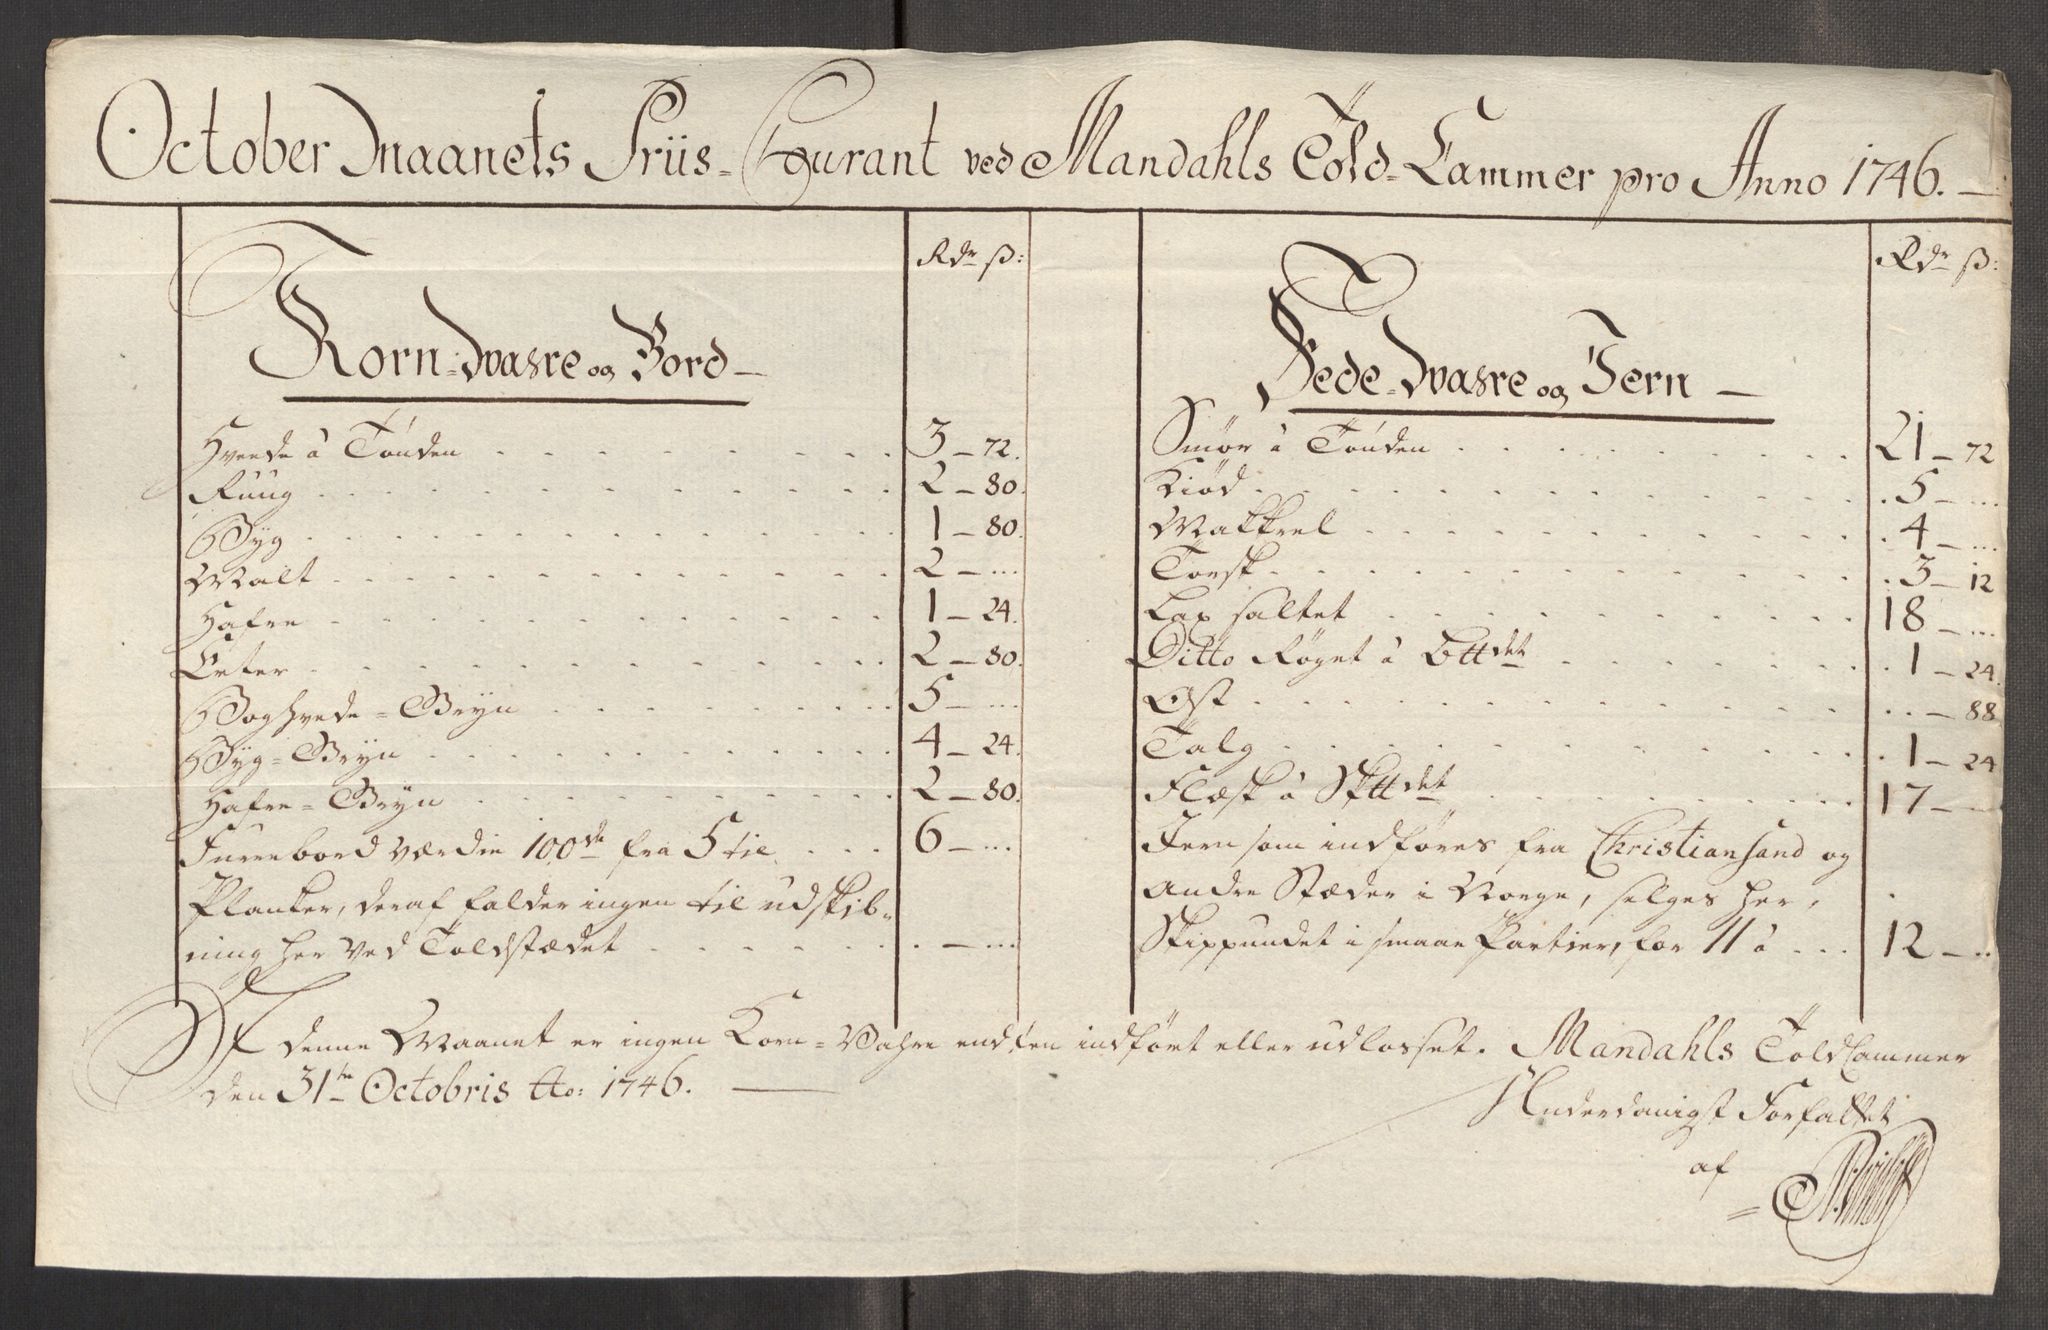 October Maanets Priis-Courant ved Mandahls Told-Cammer pro Anno 1746.
Rdr ß:
Korn-Waare og Bord
Hvede à Tønden 3 - 72.
Ruug 2 - 80.
Byg 1 - 80.
Malt 2 - ...
Hafre 1 - 24.
Erter 2 - 80.
Boghvede-Gryn 5 - ...
Byg-Gryn 4 - 24.
Hafre-Gryn 2 - 80.
Furrebord værdie 100de fra 5 til 6 - ...
Planker, deraf falder ingen til udskib-
ning her ved Toldstædet . - ...
Rdr ß:
Fede-Waare og Jern
Smør à Tønden 21 - 72
Kiød 5 - ...
Makkrel 4 - ...
Torsk 3 - 12
Lax saltet 18 - ...
Ditto Røget à Bttdet 1 - 24.
Ost .. - 88
Talg 1 - 24
Flæsk à Skttdet 17 - ...
Jern som indføres fra Christiansand og
andre Stæder i Norge, selges her,
Skippundet i smaae Partier, for 11 à 12 - ...
Af denne Maanet er ingen Korn-Vahre endten indført eller udlosset. Mandahls Told Cammer
den 31te Octobris Ao: 1746.
Underdanigst Forfattet
af